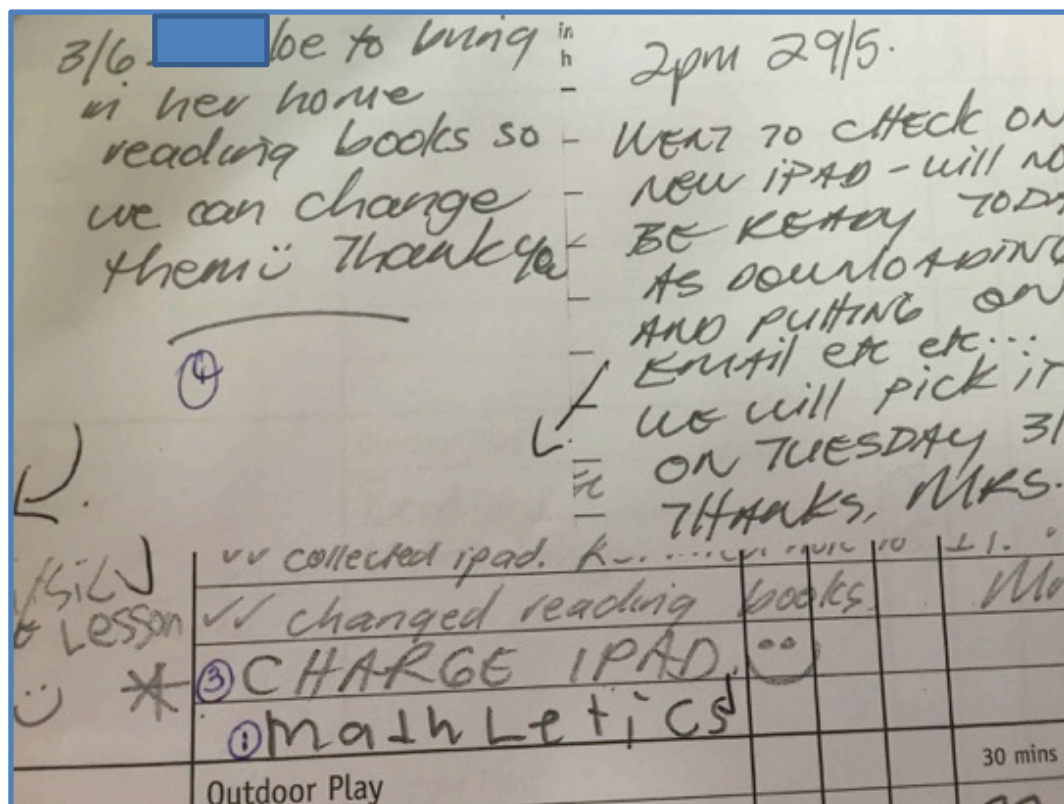 3/6 - be to bring
in her home
reading books so
we can change
them Thank you
4
in
h
2pm 29/5.
WENT TO CHECK ON
NEW iPAD - will NO
BE READY TODA
AS DOWNLOADING
AND PUTTING ON
EMAil etc etc...
WE will PICK IT
ON TUESDAY 3/
THANKS, MRS.
Lesson
✓✓ collected ipad.
✓✓ changed reading books Mr
③ CHARGE IPAD.
① mathLetics
Outdoor Play
30 mins